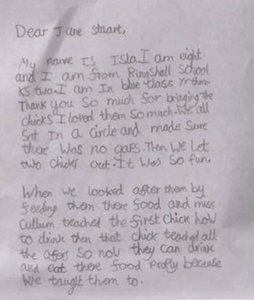 Dear Jane Stuart,
My name Is Isla.I am eight
and I am from Ringshall School
ks two.I am In blue class Yr three
Thank you So much for bringing the
chicks I loved them so much.We all
Sat In a circle and made Sure
there was no gaps.Then We Let
two Chicks out.It Was So fun.
When we looked after them by
feeding them there food and miss
Cullum teached the first chick how
to drink then that chick teached all
the others So now they can drink
and eat there food proply because
We taught them to.